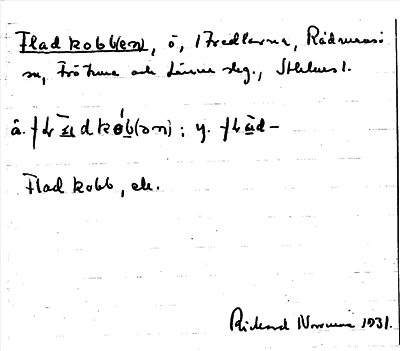 Fladkobb(en), ö, i Fredlarna, Rådmansö
sn, Frötuna och Länna slg., Sthlms l.
ä. flɑdkɔb(ən); y. flɑd-
Fladkobb, ek.
Rickard Norrman 1931.